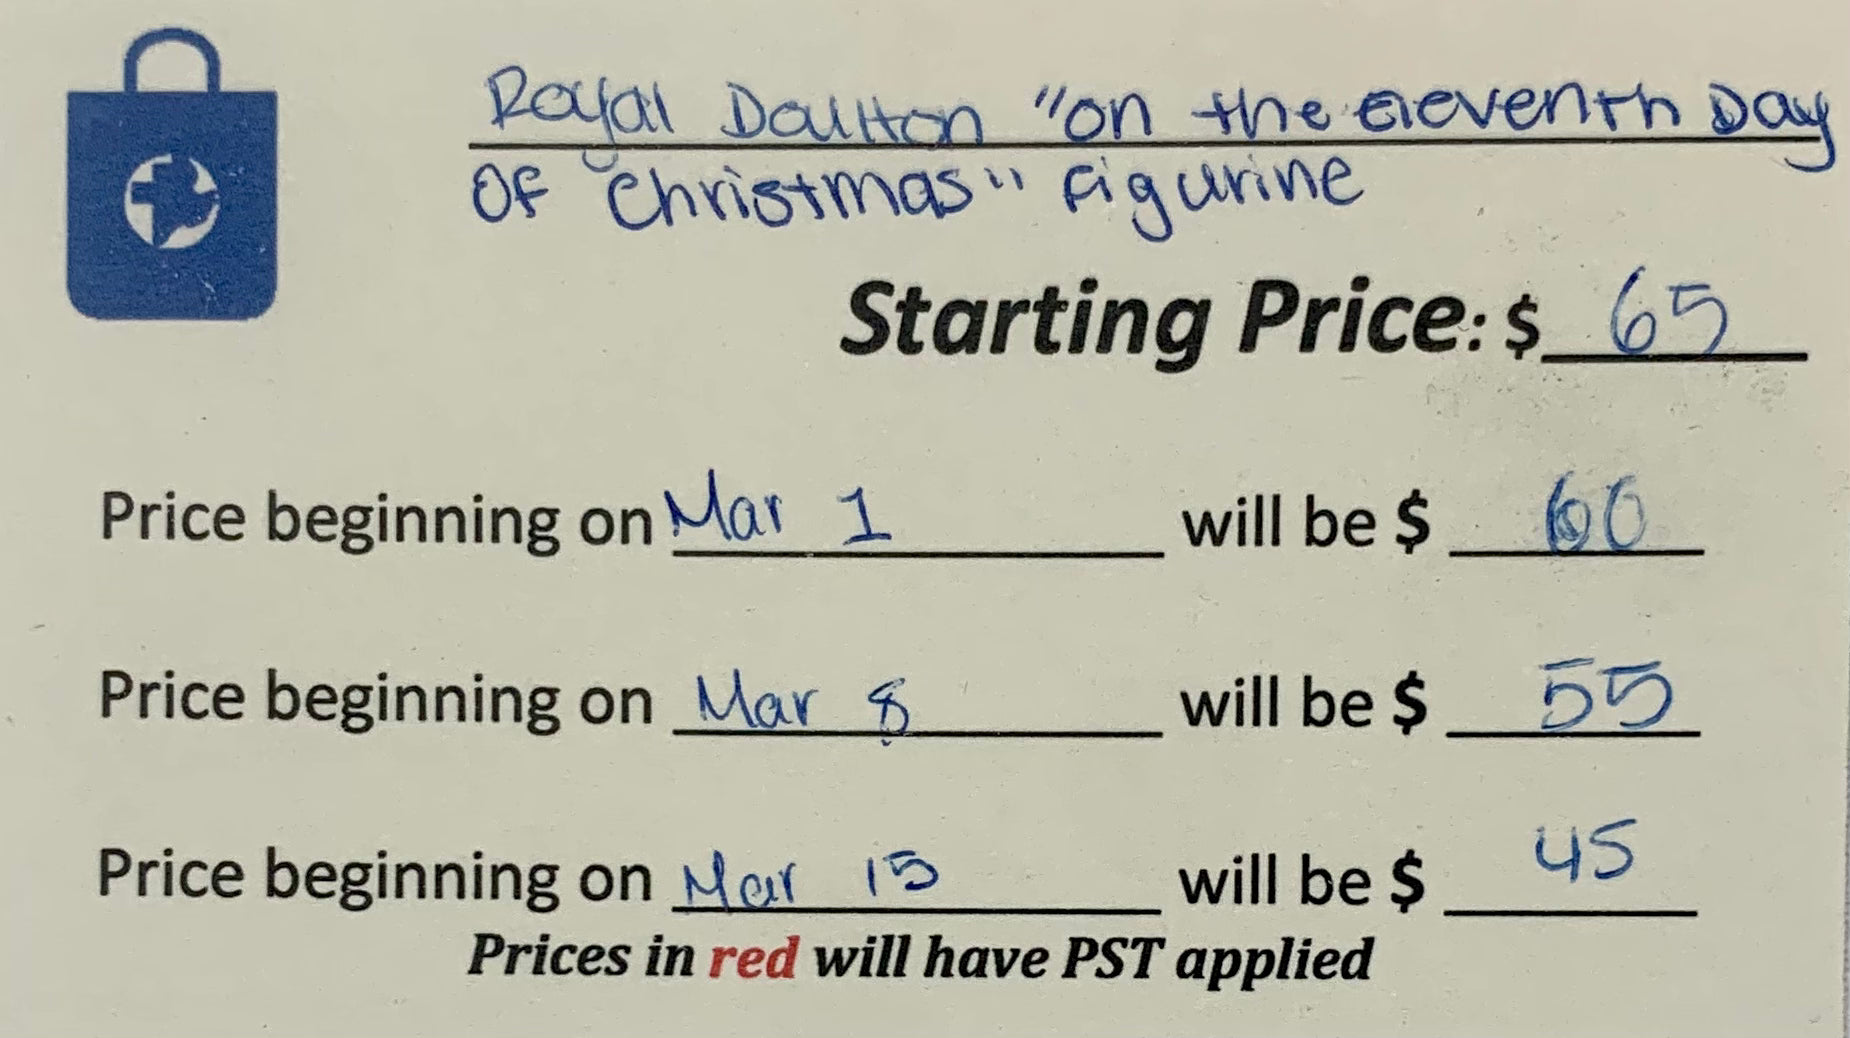 Royal Doulton "on the eleventh Day
OF Christmas" figurine
Starting Price: $ 65
Price beginning on Mar 1 will be $ 60
Price beginning on Mar 8 will be $ 55
Price beginning on Mar 15 will be $ 45
Prices in red will have PST applied